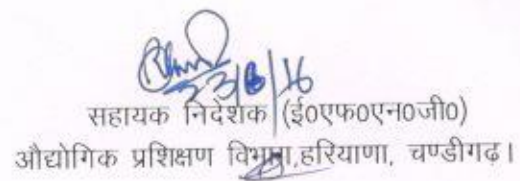 23/8/16
सहायक निदेशक (ई०एफ०एन०जी०)
औद्योगिक प्रशिक्षण विभाग,हरियाणा, चण्डीगढ़।